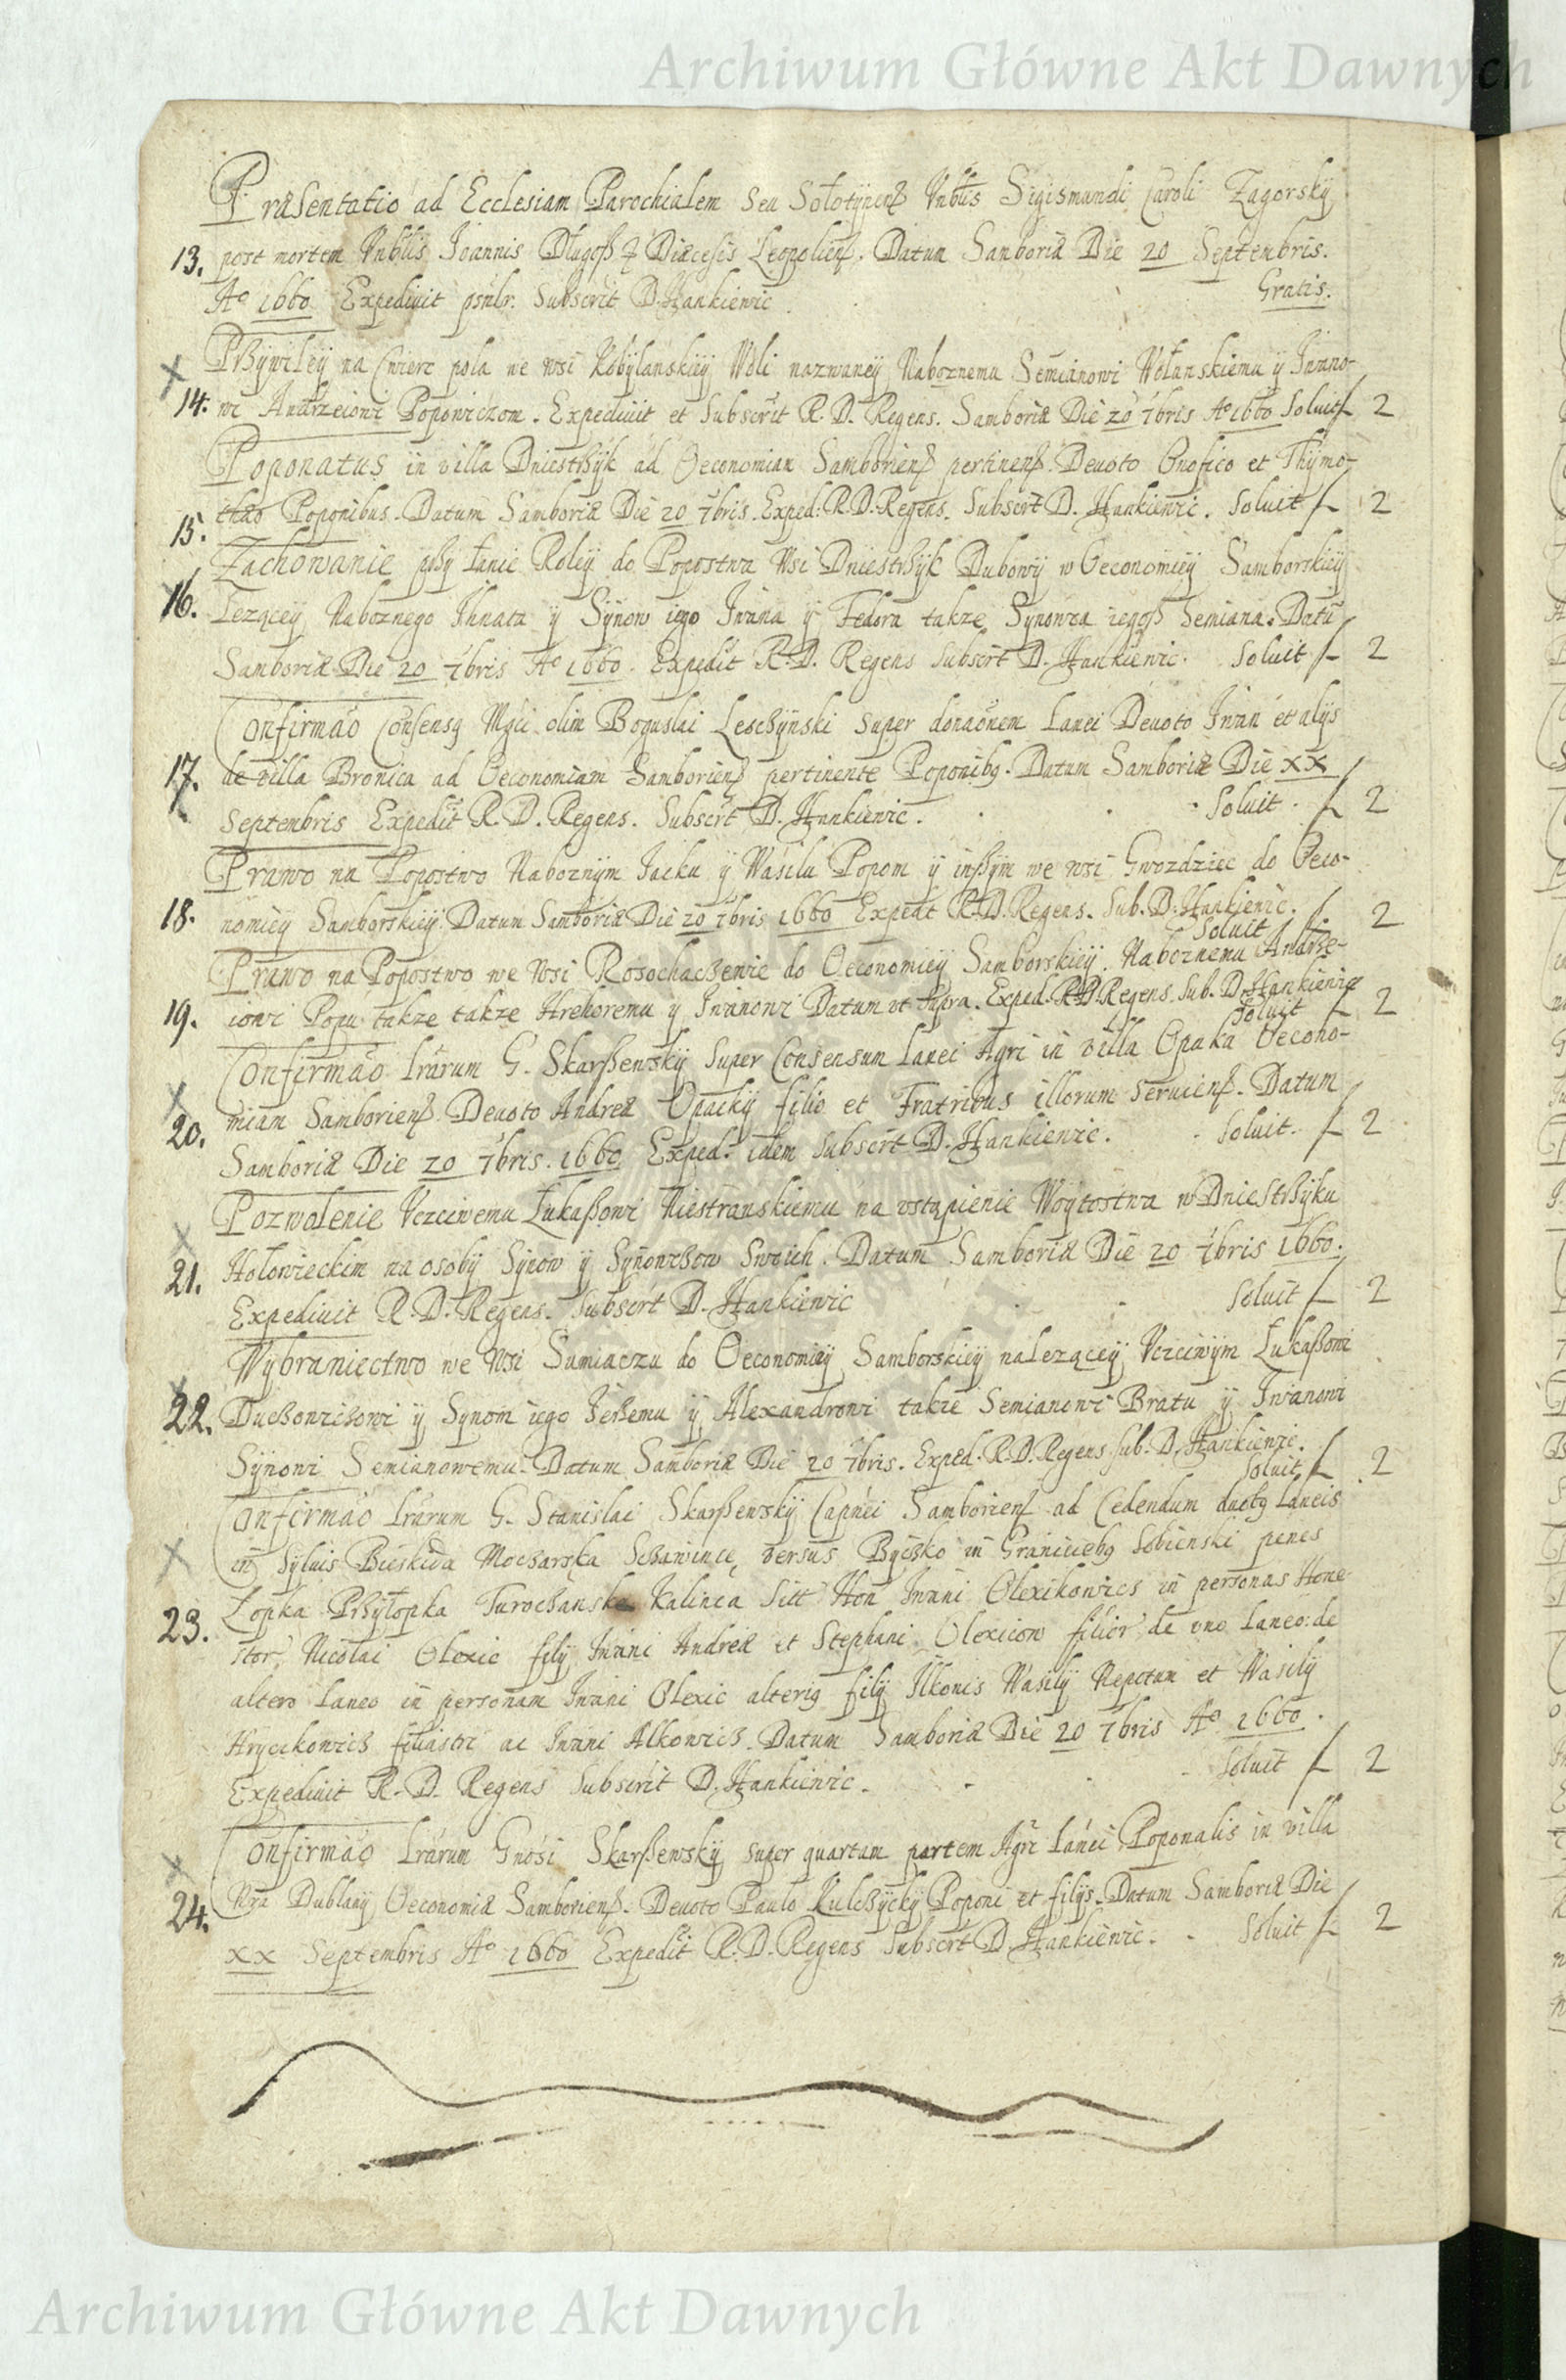 Archiwum Główne Akt Dawnych
Præsentatio ad Ecclesiam Parochialem seu Sołotÿnens Vnblis Sigismundi Caroli Zagorskÿ
13. post mortem Vnblis Joannis Długoss Diæcesis Leopoliens. Datum Samboriæ Die 20 Septembris.
Ao 1660 Expediuit Subscrit D. Hankiewic. Gratis.
Prżÿwileÿ na Cwierc pola we wsi Kobÿlanskieÿ Woli nazwaneÿ Naboznemu Semianowi Wołunskiemu ÿ Iwano-
14. wi Andrzeiowi Popowiczom. Expediuit et Subscrit R. D. Regens. Samboriæ Die 20 7bris Ao 1660 Soluit f 2
Poponatus in villa Dniestrżÿk ad Oeconomiam Samboriens pertinens. Deuoto Onofico et Thÿmo-
15. theo Poponibus. Datum Samboriæ Die 20 7bris. Exped: R. D. Regens. Subscrt D. Hankiewic. Soluit f 2
Zachowanie prży Łanie Roleÿ do Popostwa Wsi Dniestrżÿk Dubowÿ w Oeconomieÿ Samborskieÿ
16. Lezqceÿ Naboznego Ihnata ÿ Sÿnow iego Iwana ÿ Fedora takze Sÿnowca iegoss Semiana. Datu
Samboriæ Die 20 7bris Ao 1660. Expedit R. D. Regens Subscrt D. Hankiewic. Soluit f 2
Confirmao Consensq Mgci olim Boguslai Lesczÿnski super donaonem Lanei Deuoto Iwan et alÿs
17. de villa Bronica ad Oeconomiam Samboriens pertinente Poponibq. Datum Samboriæ Die XX
Septembris Expedit R. D. Regens. Subscrt D. Hankiewic. Soluit. f 2
Prawo na Popostwo Naboznÿm Iacku ÿ Wasilu Popom ÿ inszÿm we wsi Gwozdziec do Oeco-
18. nomieÿ Samborskieÿ Datum Samboriæ Die 20 7bris 1660 Expedt R. D. Regens. Sub. D. Hankiewic. Soluit f. 2
Prawo na Popostwo we Wsi Rosochaczewie do Oeconomieÿ Samborskieÿ. Naboznemu Andrze-
19. iowi Popu takze takze Hrehoremu ÿ Iwanowi Datum vt supra. Exped. R. D. Regens. Sub. D. Hankiewic Soluit f 2
Confirmao Lrarum G. Skarszewskÿ super Consensum Lanei Agri in villa Opaka Oecono-
20. miam Samboriens Deuoto Andreæ Opackÿ filio et Fratribus illorum seruiens. Datum
Samboriæ Die 20 7bris. 1660 Exped. idem Subscrt D. Hankiewic. Soluit. f 2
Pozwolenie Vczciwemu Łukaszowi Niestranskiemu na vstąpienie Woÿtostwa w Dniestrżÿku
21. Hołowieckim na osobÿ Sÿnow ÿ Sÿnowczow Swoich. Datum Samboriæ Die 20 7bris 1660.
Expediuit R. D. Regens. Subscrt D. Hankiewic Soluit f 2
Wÿbraniectwo we Wsi Sumiaczu do Oeconomieÿ Samborskieÿ nalezqceÿ Vczciwÿm Łukaszowi
22. Duczowiczowi ÿ Sÿnom iego ÿ Alexandrowi takze Semianowi Bratu ÿ Iwanowi
Sÿnowi Semianowemu. Datum Samboriæ Die 20 7bris. Exped. R. D. Regens Sub. D. Hankiewic. Soluit f 2
Confirmao Lrarum G. Stanislai Skarszewskÿ Capnei Samboriens ad Cedendum duobq Laneis
in Sÿluis Bieskida Moczarska versus Bÿczko in Graniciebq Sobienski penes
23. Łopka Prżÿłopka Turoczanske Kalinca Iwani Olexikowics in personas Hone-
stor Nicolai Olexic filÿ Iwani Andreæ et Stephani Olexicow filior de vno Laneo: de
altero Laneo in personam Iwani Olexic alteriq filÿ Ilkonis Wasilÿ Nepotum et Wasilÿ
Hryckowicz filiastri ac Iwani Alkowicz. Datum Samboriæ Die 20 7bris Ao 1660.
Expediuit R. D. Regens Subscrit D. Hankiewic. Soluit f 2
Confirmao Lrarum Gnosi Skarszewskÿ super quartam partem Agri Lanei Poponalis in villa
24. Nra Dublanÿ Oeconomiæ Samboriens. Deuoto Paulo Kulczÿckÿ Poponi et filÿs. Datum Samboriæ Die
XX Septembris Ao 1660 Expedit R. D. Regens Subscrt D. Hankiewic. Soluit f 2
Archiwum Główne Akt Dawnych